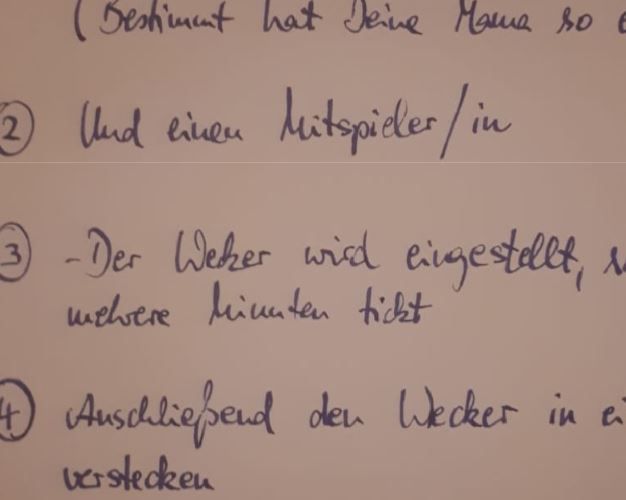 (Bestimmt hat Deine Mama so
② Und einen Mitspieler/in
③ -Der Wecker wird eingestellt,
mehrere Minuten tickt
④ Anschließend den Wecker in ei
verstecken